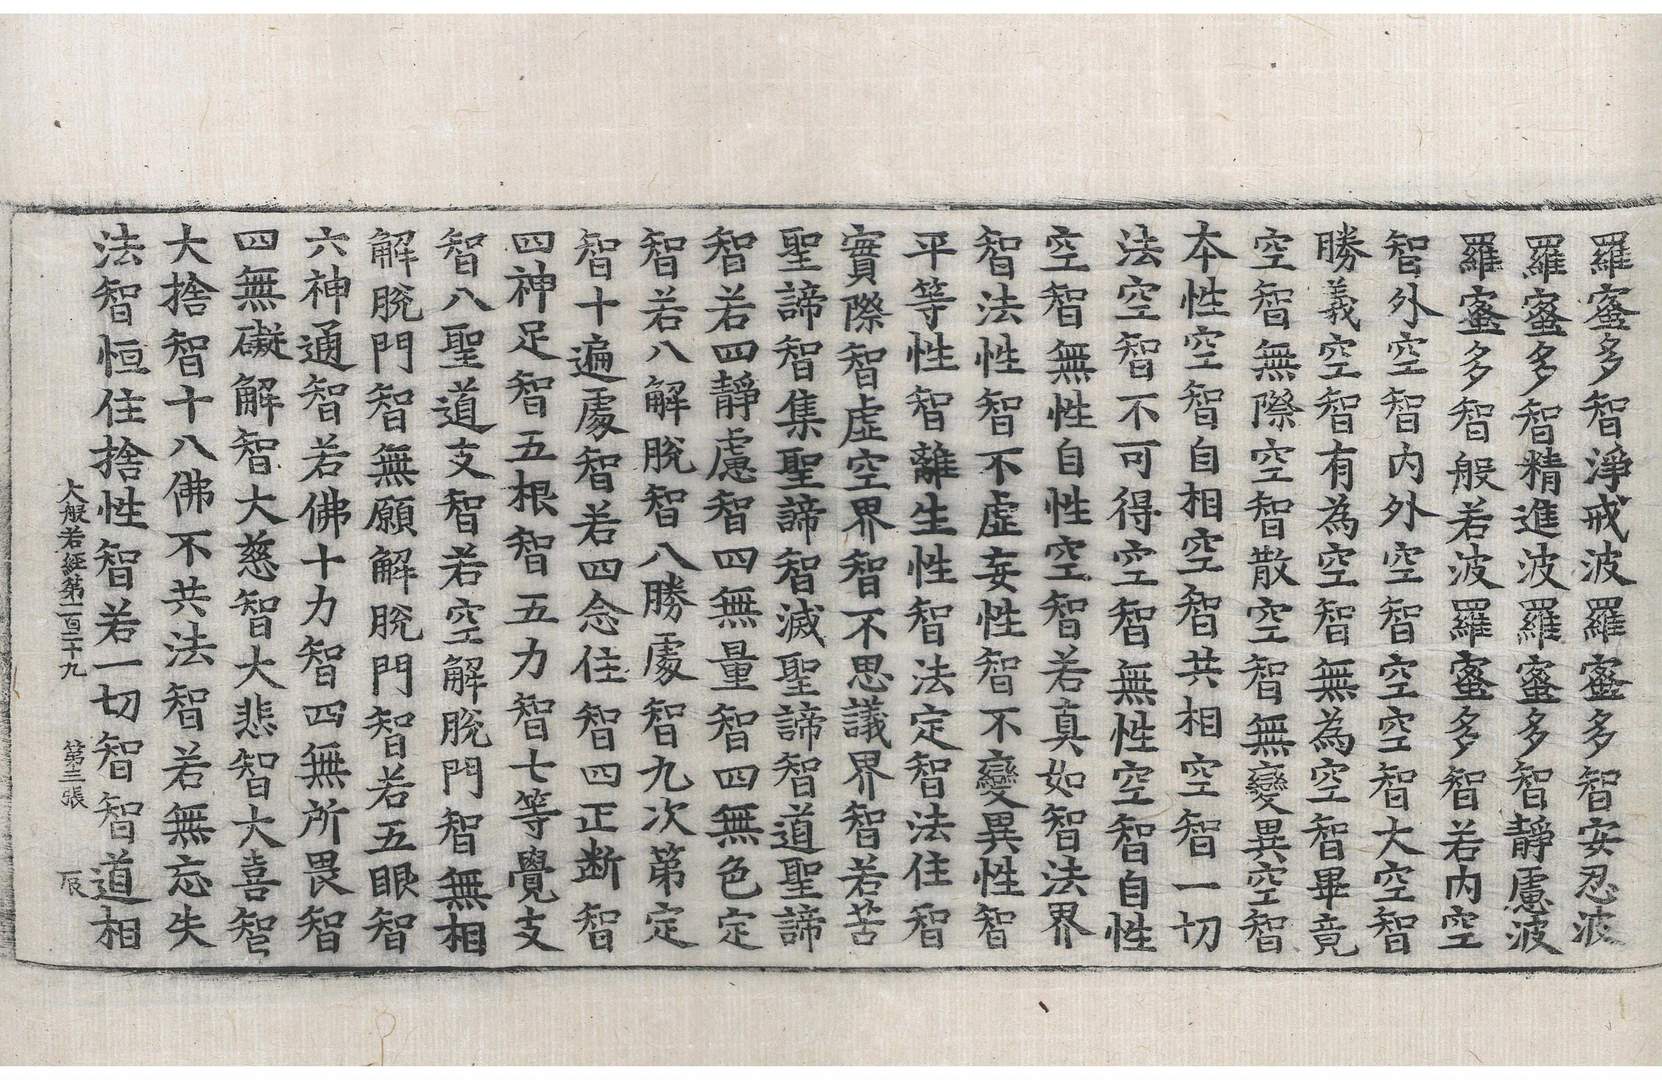 羅蜜多智淨戒波羅蜜多智安忍波
羅蜜多智精進波羅蜜多智靜慮波
羅蜜多智般若波羅蜜多智若内空
智外空智内外空智空空智大空智
勝義空智有為空智無為空智畢竟
空智無際空智散空智無變異空智
本性空智自相空智共相空智一切
法空智不可得空智無性空智自性
空智無性自性空智若真如智法界
智法性智不虛妄性智不變異性智
平等性智離生性智法定智法住智
實際智虛空界智不思議界智若苦
聖諦智集聖諦智滅聖諦智道聖諦
智若四靜慮智四無量智四無色定
智若八解脫智八勝處智九次第定
智十遍處智若四念住智四正断智
四神足智五根智五力智七等覺支
智八聖道支智若空解脫門智無相
解脫門智無願解脫門智若五眼智
六神通智若佛十力智四無所畏智
四無礙解智大慈智大悲智大喜智
大捨智十八佛不共法智若無忘失
法智恒住捨性智若一切智智道相
大般若経第一百二十九 第三張 辰